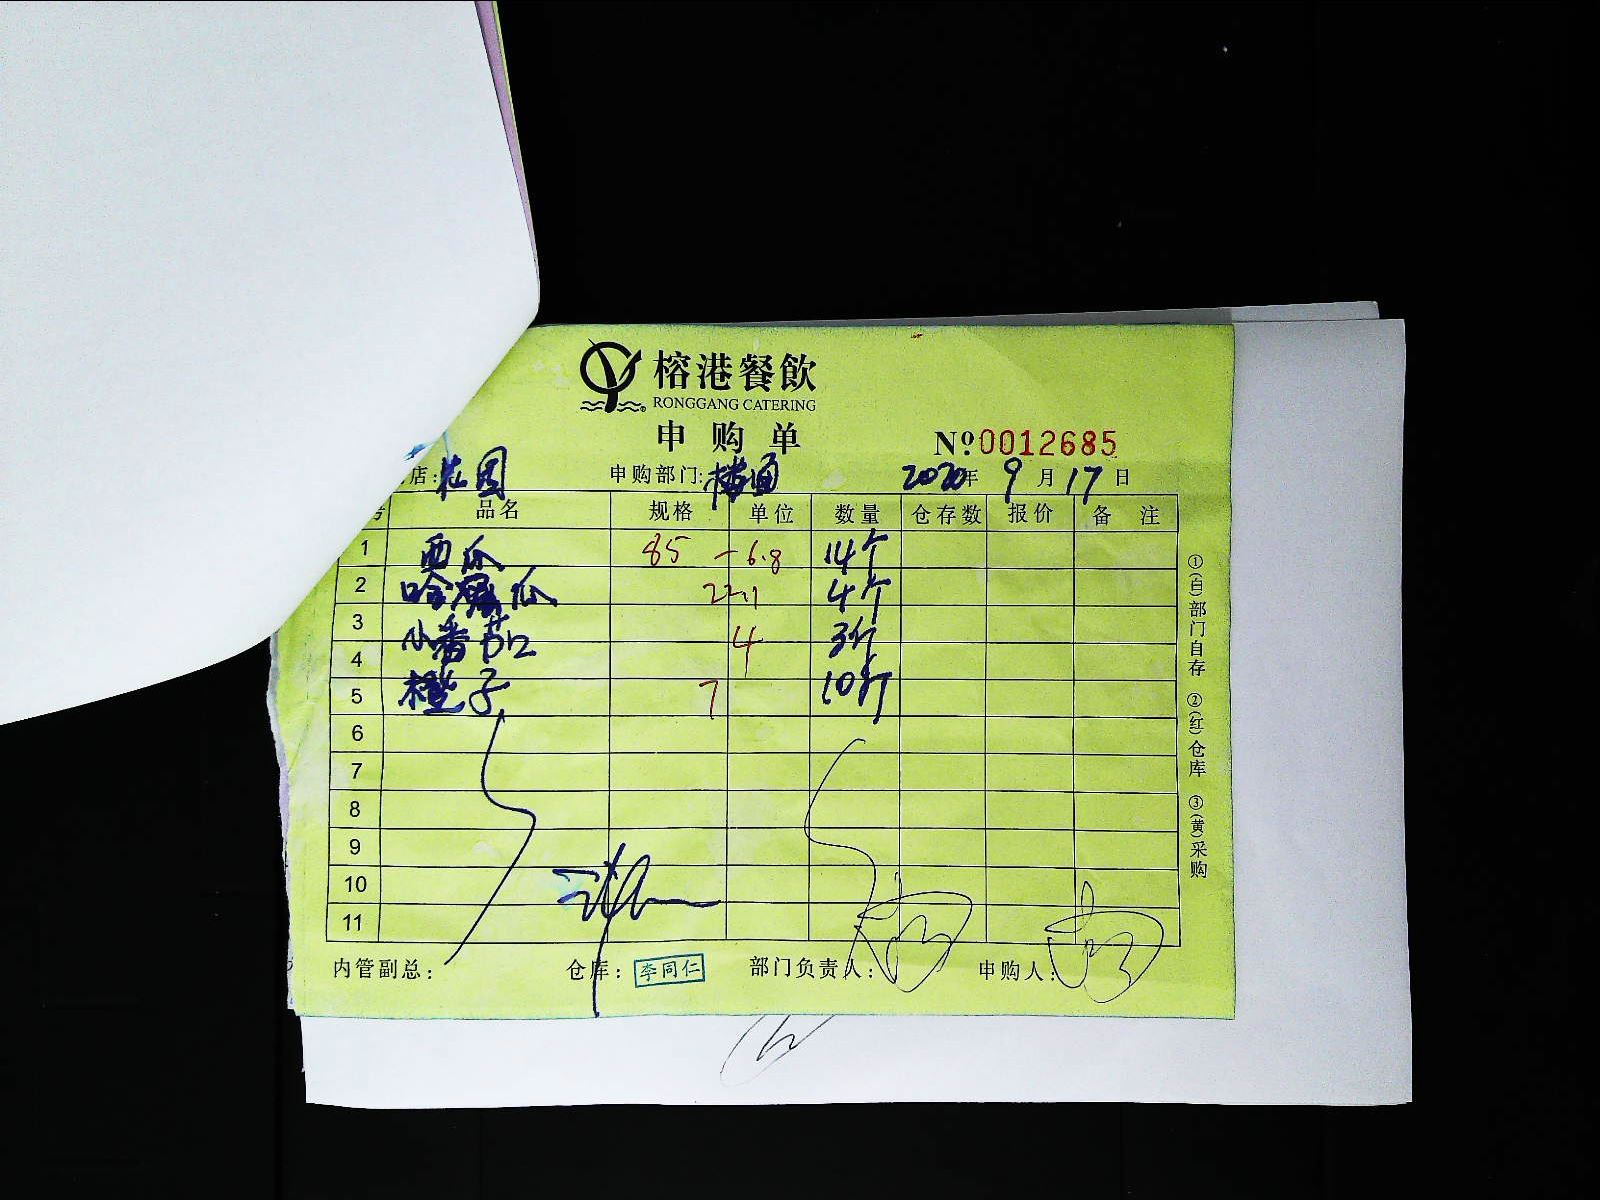 榕港餐飲
RONGGANG CATERING
申购单
№0012685
店: 庄园 申购部门: 楼面 2020年9月17日
号 品名 规格 单位 数量 仓存数 报价 备注
1 西瓜 85 -6.8 14个
2 哈密瓜 22.1 4个
3 小番茄 4 3斤
4
5 橙子 7 10斤
6
7
8
9
10
11
内管副总: 仓库: 李同仁 部门负责人: 申购人:
①(白)部门自存 ②(红)仓库 ③(黄)采购